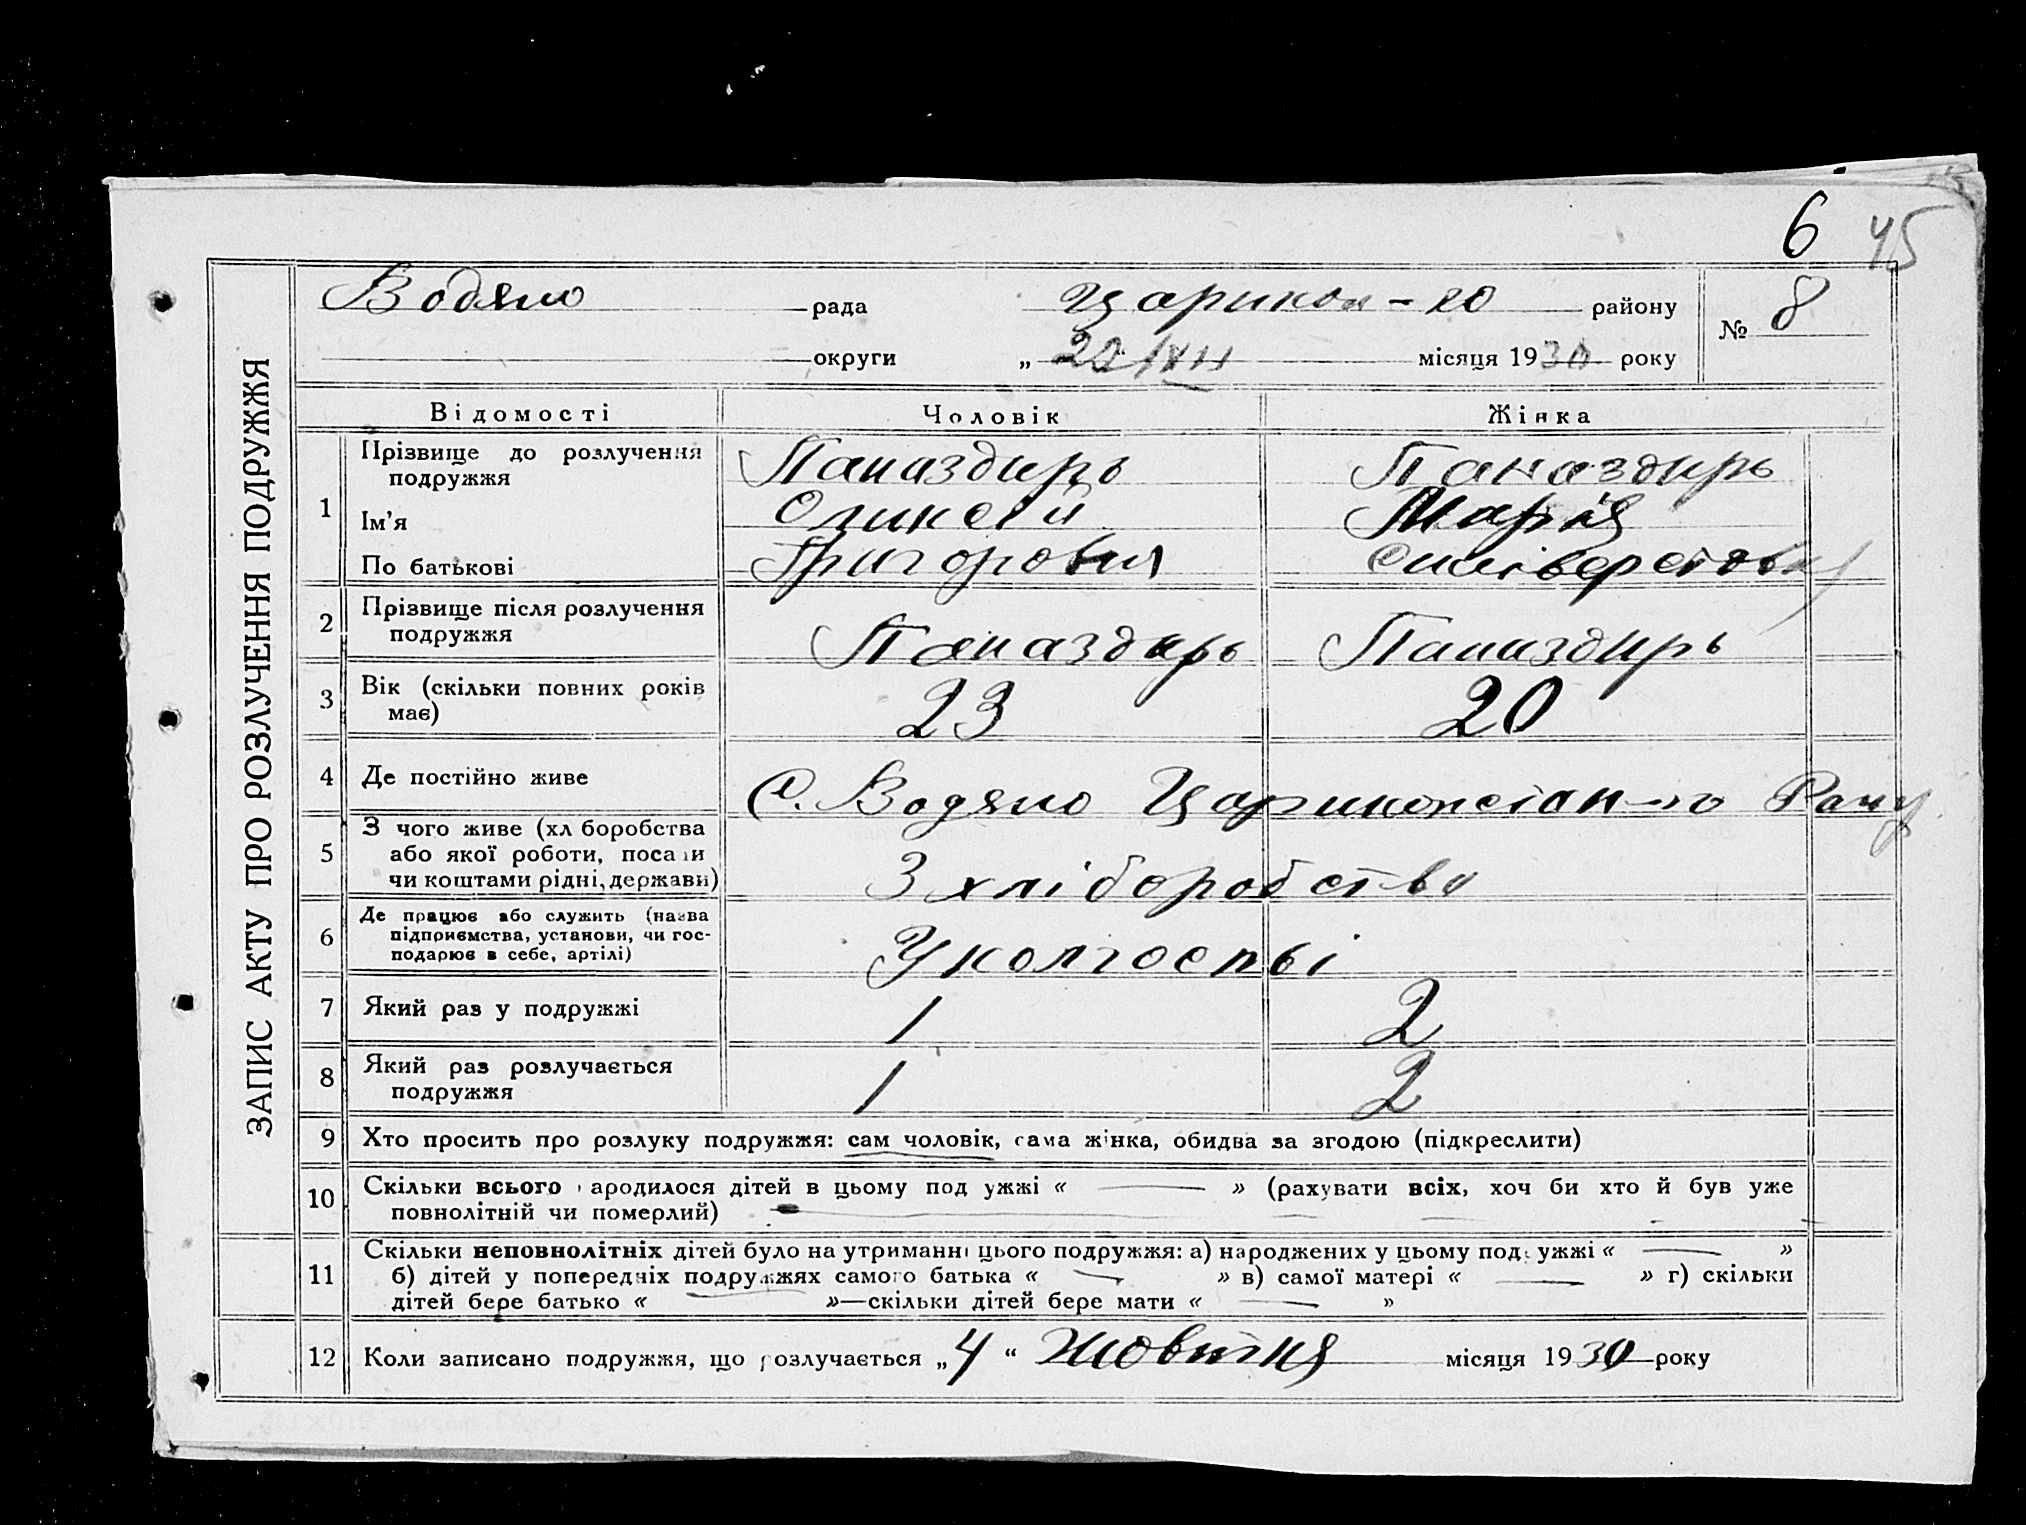 6 45
Водяно рада Царикон-го району № 8
округи „ 20 місяця 1930 року
ЗАПИС АКТУ ПРО РОЗЛУЧЕННЯ ПОДРУЖЖЯ
Відомості Чоловік Жінка
1 Прізвище до розлучення подружжя Паназдирь Паназдирь
Ім'я Оликсій Марія
По батькові Григорович Силіверстовна
2 Прізвище після розлучення подружжя Паназдирь Паназдирь
3 Вік (скільки повних років має) 23 20
4 Де постійно живе С. Водяно Цариконстан-го Рану
5 З чого живе (хл боробства або якої роботи, посади чи коштами рідні, держави) З хліборобства
6 Де працює або служить (назва підприємства, установи, чи господарює в себе, артілі) У колгоспві
7 Який раз у подружжі 1 2
8 Який раз розлучається подружжя 1 2
9 Хто просить про розлуку подружжя: сам чоловік, сама жінка, обидва за згодою (підкреслити)
10 Скільки всього народилося дітей в цьому подружжі « — » (рахувати всіх, хоч би хто й був уже
повнолітній чи померлий)
11 Скільки неповнолітніх дітей було на утриманні цього подружжя: а) народжених у цьому подружжі « — »
б) дітей у попередніх подружжях самого батька « — » в) самої матері « — » г) скільки
дітей бере батько « »—скільки дітей бере мати « — »
12 Коли записано подружжя, що розлучається „4“ Жовтня місяця 1930 року